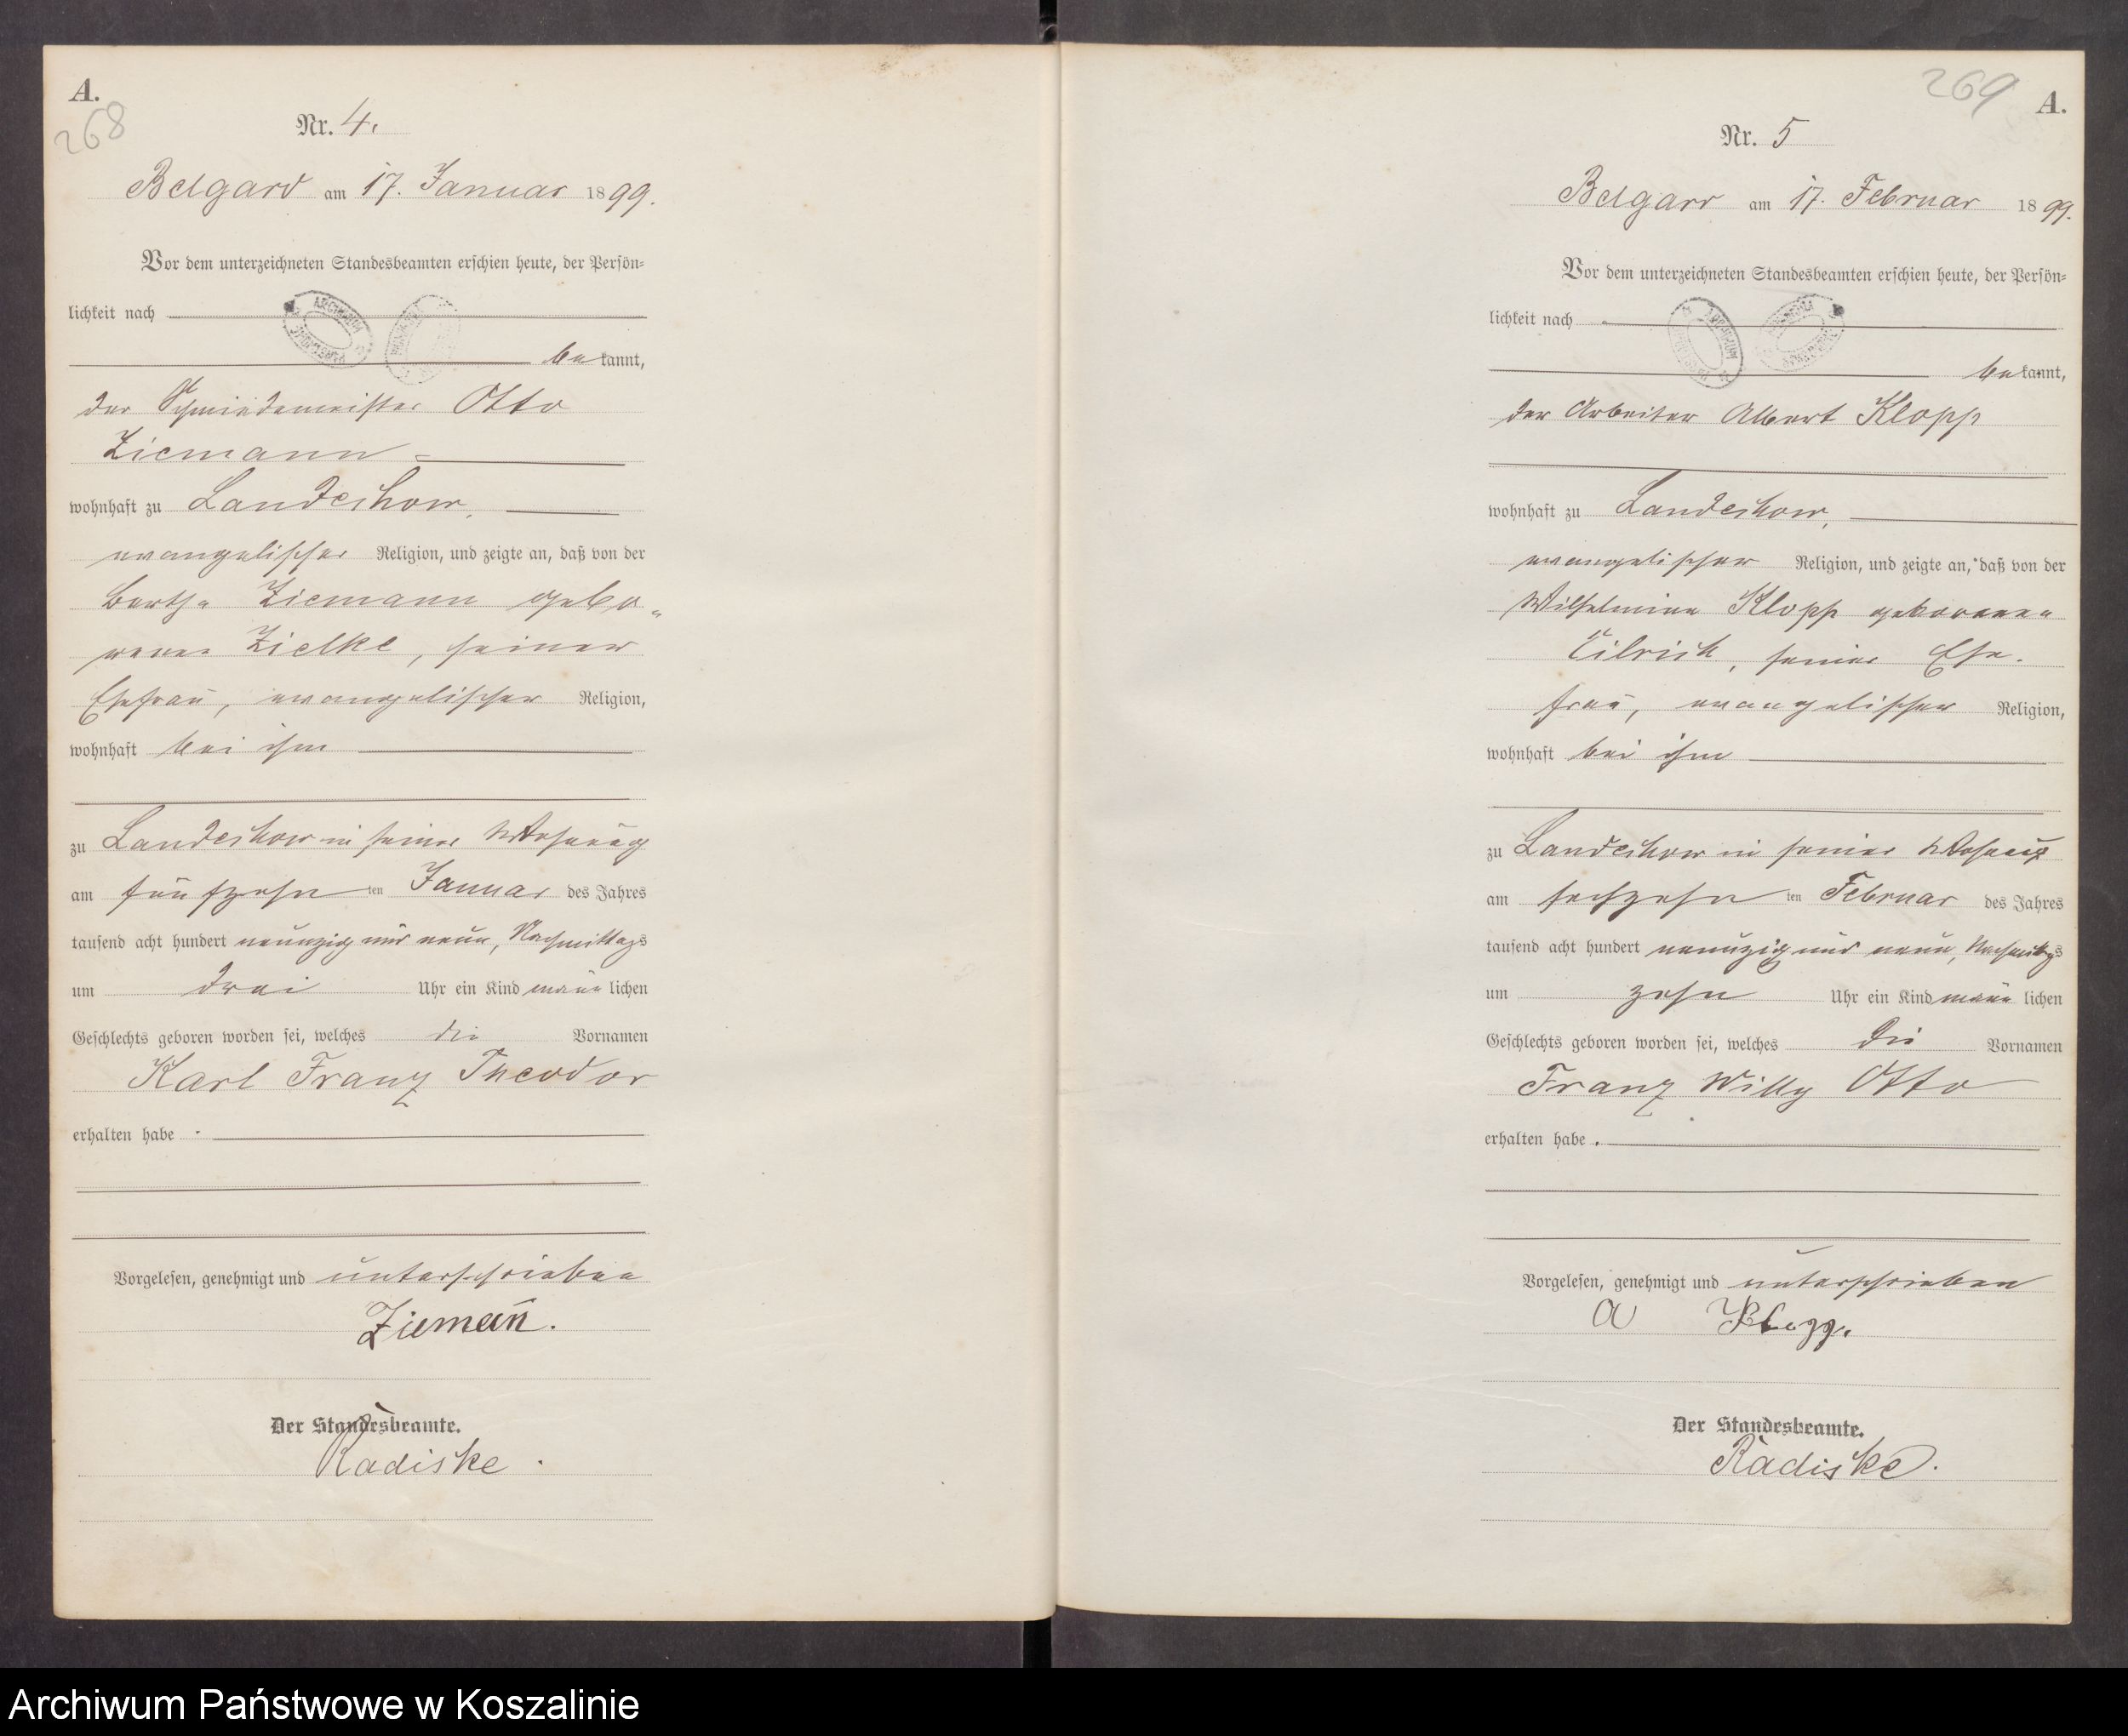 A.
268
Nr. 4.
Belgard am 17. Januar 1899.
Vor dem unterzeichneten Standesbeamten erschien heute, der Persön-
lichkeit nach
bekannt,
der Schmiedemeister Otto
Ziemann
wohnhaft zu Landechow,
evangelischer Religion, und zeigte an, daß von der
Bertha Ziemann gebo-
renen Zielke, seiner
Ehefrau, evangelischer Religion,
wohnhaft bei ihm
zu Landechow in seiner Wohnung
am fünfzehnten Januar des Jahres
tausend acht hundert neunzig und neun, Nachmittags
um drei Uhr ein Kind männlichen
Geschlechts geboren worden sei, welches die Vornamen
Karl Franz Theodor
erhalten habe.
Vorgelesen, genehmigt und unterschrieben
Ziemann̄.
Der Standesbeamte.
Radiske.
269
A.
Nr. 5
Belgard am 17. Februar 1899.
Vor dem unterzeichneten Standesbeamten erschien heute, der Persön-
lichkeit nach
bekannt,
der Arbeiter Albert Klopp
wohnhaft zu Landechow,
evangelischer Religion, und zeigte an, daß von der
Wilhelmine Klopp geborenen
seiner Ehe-
frau, evangelischer Religion,
wohnhaft bei ihm
zu Landechow in seiner Wohnung
am sechzehnten Februar des Jahres
tausend acht hundert neunzig und neun, Nachmittags
um zehn Uhr ein Kind männlichen
Geschlechts geboren worden sei, welches die Vornamen
Franz Willy Otto
erhalten habe.
Vorgelesen, genehmigt und unterschrieben
A Klopp.
Der Standesbeamte.
Radiske.
Archiwum Państwowe w Koszalinie